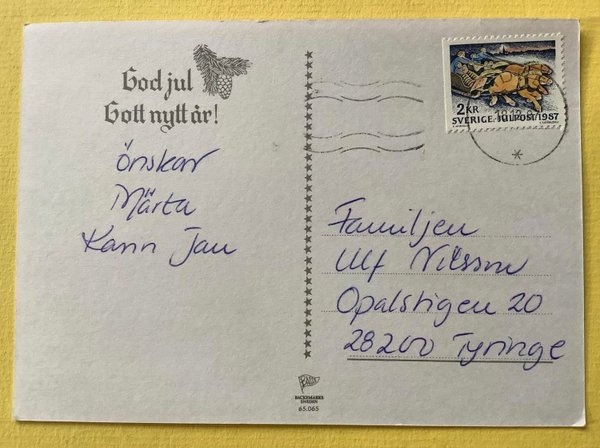 God jul
Gott nytt år!
önskar
Märta
Karin Jan
2 KR
SVERIGE JULPOST 1987
Familjen
Ulf Nilsson
Opalstigen 20
28200 Tyringe
BACKEMARKS
SWEDEN
65.065